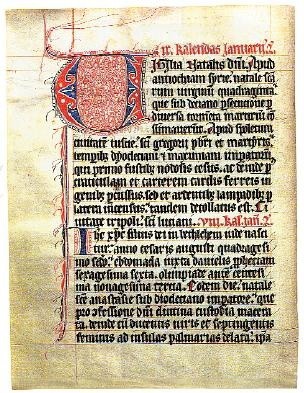 ix. kalendas Januarii.
Vigilia Natalis dni. Apud
antiochiam syrie. natale sca
rum uirginum quadraginta
que sub deciano psecutione p
diuersa tormenta martirium con
sumauerunt. Apud spoletum
ciuitatem tuscie. sci gregorii pbri et martyris.
temporibus dyocletiani et maximiani imperatorum
qui primo fustibus nodosis cesus. ac deinde p
craticulam et carcerem cardis ferreis i
genibus percussus. sed et ardentibus lampadibus p
latera incensus. tandem decollatus est. Ci
uitate tripoli. sci luciani. viii. kal. ian.
Ihc xpc filius dei in bethleem iude nasci
tur. anno cesaris augusti quadragesi
mo sedo. ebdomada iuxta danielis prophetiam
sexagesima sexta. olimpiade centesi
ma nonagesima tercia. Eodem die. natale
sce anastasie sub dyocletiano imperatore. que
pro confessione dni diutina custodia macera
ta. deinde cum ducentis uiris et septingentis
feminis ad insulas palmarias delata. ipa